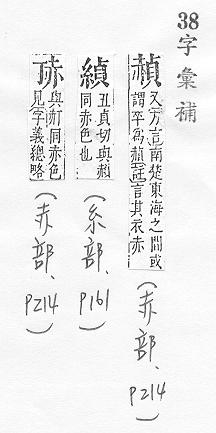 38
字彙補
赬
又方言南楚東海之間或
謂卒為赬註言其衣赤
(赤部、
P214)
緽
丑貞切與赬
同赤色也
(糸部、
P161)
與同赤色
見字義總略
(赤部、
P214)